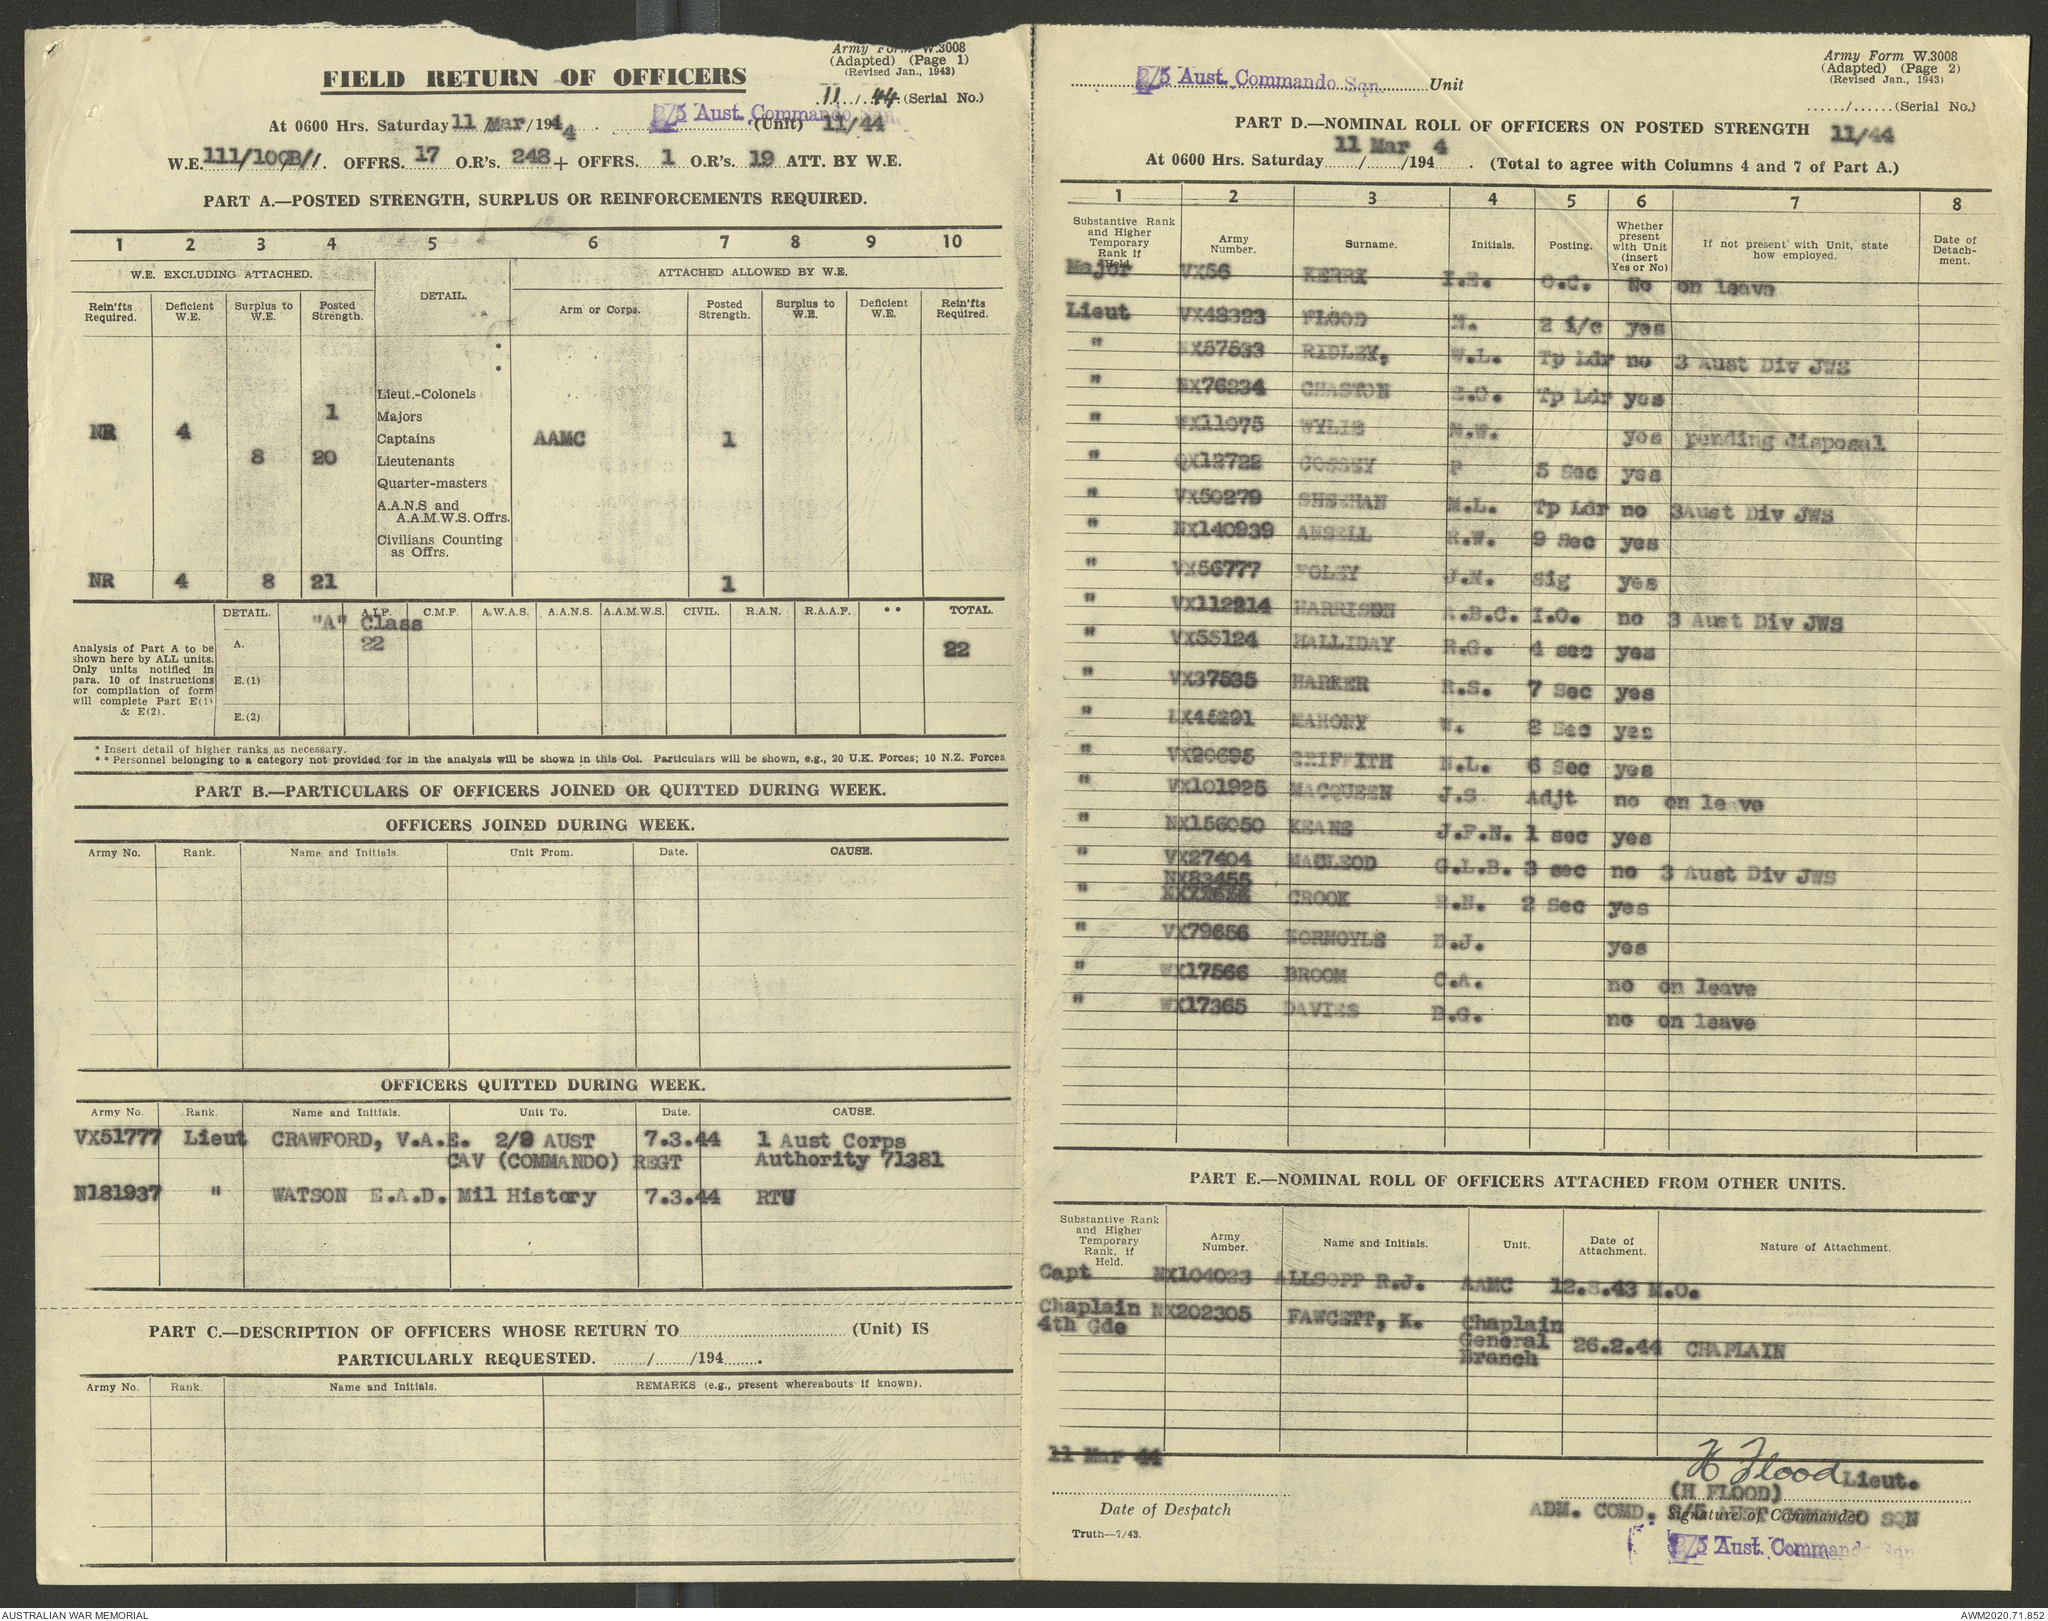 Army Form W.3008
(Adapted) (Page 1)
(Revised Jan., 1943)
FIELD RETURN OF OFFICERS
11 / 44 (Serial No.)
At 0600 Hrs. Saturday 11 / Mar / 1944 2/5 Aust. Commando Sqn. (Unit) 11/44
W.E. 111/10CB/1. OFFRS. 17 O.R's. 248 + OFFRS. 1 O.R's. 19 ATT. BY W.E.
PART A.—POSTED STRENGTH, SURPLUS OR REINFORCEMENTS REQUIRED.
1 2 3 4 5 6 7 8 9 10
W.E. EXCLUDING ATTACHED. DETAIL. ATTACHED ALLOWED BY W.E.
Rein'fts Required. Deficient W.E. Surplus to W.E. Posted Strength. Arm or Corps. Posted Strength. Surplus to W.E. Deficient W.E. Rein'fts Required.
*
*
Lieut.-Colonels
1 Majors
NR 4 Captains AAMC 1
8 20 Lieutenants
Quarter-masters
A.A.N.S and
A.A.M.W.S. Offrs.
Civilians Counting
as Offrs.
NR 4 8 21 1
DETAIL. A.I.F. C.M.F. A.W.A.S. A.A.N.S. A.A.M.W.S. CIVIL. R.A.N. R.A.A.F. ** TOTAL.
"A" Class
A. 22 22
Analysis of Part A to be
shown here by ALL units.
Only units notified in
para. 10 of instructions
for compilation of form
will complete Part E(1)
& E(2).
E.(1)
E.(2)
* Insert detail of higher ranks as necessary.
** Personnel belonging to a category not provided for in the analysis will be shown in this Col. Particulars will be shown, e.g., 20 U.K. Forces; 10 N.Z. Forces
PART B.—PARTICULARS OF OFFICERS JOINED OR QUITTED DURING WEEK.
OFFICERS JOINED DURING WEEK.
Army No. Rank. Name and Initials. Unit From. Date. CAUSE.
OFFICERS QUITTED DURING WEEK.
Army No. Rank. Name and Initials. Unit To. Date. CAUSE.
VX51777 Lieut CRAWFORD, V.A.E. 2/9 AUST 7.3.44 1 Aust Corps
CAV (COMMANDO) REGT Authority 71381
N181937 " WATSON E.A.D. Mil History 7.3.44 RTU
PART C.—DESCRIPTION OF OFFICERS WHOSE RETURN TO (Unit) IS
PARTICULARLY REQUESTED. / /194 .
Army No. Rank. Name and Initials. REMARKS (e.g., present whereabouts if known).
Army Form W.3008
(Adapted) (Page 2)
(Revised Jan., 1943)
2/5 Aust. Commando Sqn. Unit
....../......(Serial No.)
PART D.—NOMINAL ROLL OF OFFICERS ON POSTED STRENGTH 11/44
At 0600 Hrs. Saturday 11 / Mar /194 4 . (Total to agree with Columns 4 and 7 of Part A.)
1 2 3 4 5 6 7 8
Substantive Rank and Higher Temporary Rank if Held. Army Number. Surname. Initials. Posting. Whether present with Unit (insert Yes or No) If not present with Unit, state how employed. Date of Detach-ment.
Major VX56 KERR I.E. O.C. No on leave
Lieut VX48323 FLOOD H. 2 i/c yes
" NX57533 RIDLEY, W.L. Tp Ldr no 3 Aust Div JWS
" NX76234 CHASTON S.G. Tp Ldr yes
" WX11075 WYLIE N.W. yes pending disposal
" QX12722 COSSEY P 5 Sec yes
" VX50279 SHEEHAN M.L. Tp Ldr no 3Aust Div JWS
" NX140939 ANSELL R.W. 9 Sec yes
" VX56777 FOLEY J.N. Sig yes
" VX112214 HARRISON A.B.C. I.O. no 3 Aust Div JWS
" VX55124 HALLIDAY R.G. 4 sec yes
" VX37535 HARKER R.S. 7 Sec yes
" 45291 MAHONY W. 8 Sec yes
" VX20695 GRIFFITH N.L. 6 Sec yes
" VX101925 MACQUEEN J.S Adjt no on leave
" NX156050 KEANE J.F.N. 1 sec yes
" VX27404 MACLEOD G.L.B. 3 sec no 3 Aust Div JWS
NX83455
" CROOK R.N. 2 Sec yes
" VX79656 NORMOYLE B.J. yes
" WX17566 BROOM C.A. no on leave
" WX17365 DAVIES B.G. no on leave
PART E.—NOMINAL ROLL OF OFFICERS ATTACHED FROM OTHER UNITS.
Substantive Rank and Higher Temporary Rank, if Held. Army Number. Name and Initials. Unit. Date of Attachment. Nature of Attachment.
Capt NX104023 ALLSOPP R.J. AAMC 12.8.43 M.O.
Chaplain NX202305 FAWCETT, K. Chaplain
4th Gde General 26.2.44 CHAPLAIN
Branch
11 Mar 44
H Flood Lieut.
(H FLOOD)
Date of Despatch
ADM. COMD. 2/5 AUST COMMANDO SQN
Signature of Commander
Truth—7/43.
2/5 Aust. Commando Sqn
AUSTRALIAN WAR MEMORIAL
AWM2020.71.852